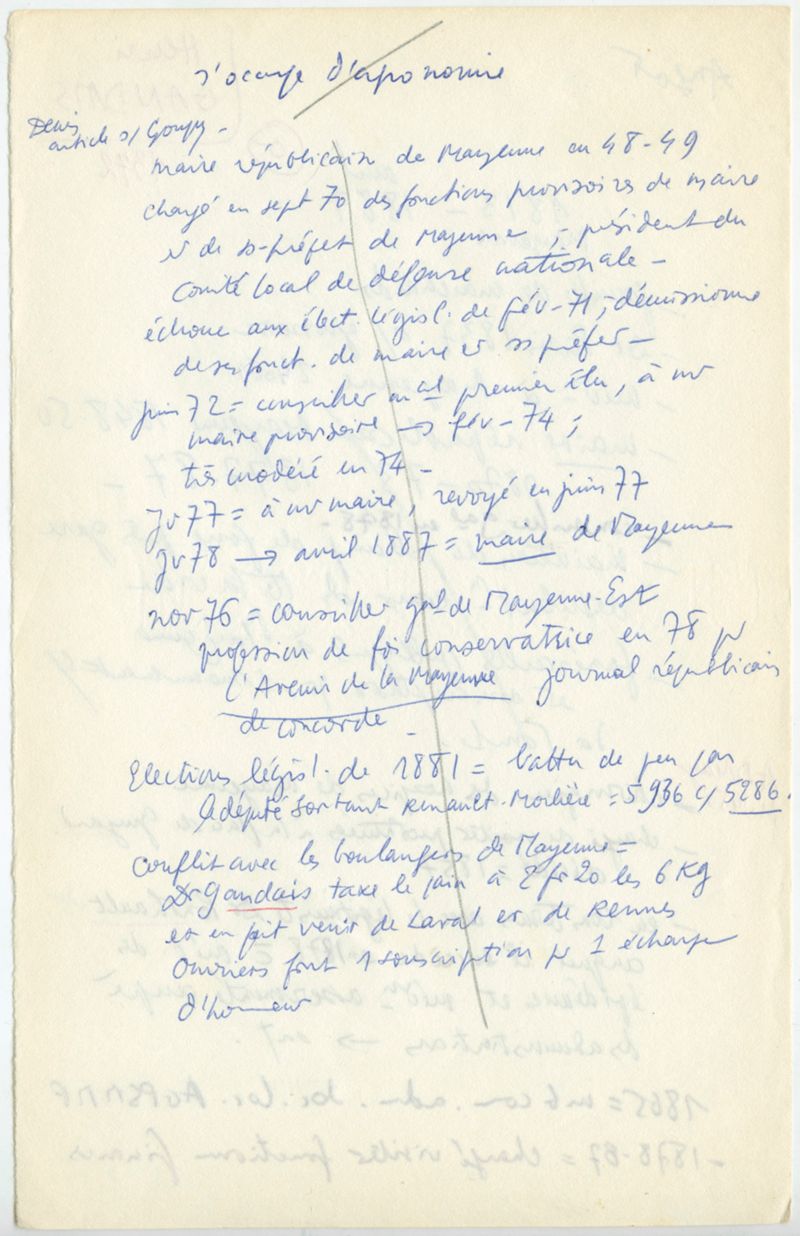 s'occupe d'agronomie
Denis
article s/ Goupy -
maire républicain de Mayenne en 48-49
chargé en sept 70 des fonctions provisoires de maire
et de ss-préfet de Mayenne ; président du
Comité local de défense nationale -
échoue aux élect législ. de fév-71, démissionne
de ses fonct. de maire et ss préfet -
juin 72 = conseiller mal premier élu, à nv
maire provisoire → fév-74 ;
très modéré en 74 -
Jv 77 = à nv maire, revoqué en juin 77
Jv 78 → avril 1887 = maire de Mayenne
nov 76 = conseiller gal de Mayenne-Est
profession de foi conservatrice en 78 pr
l'Avenir de la Mayenne journal républicain
de concorde -
Elections législ. de 1881 = battu de peu par
député sortant Renault-Morlière = 5936 c/ 5286.
Conflit avec les boulangers de Mayenne =
Dr Gandais taxe le pain à 2 fr 20 les 6 Kg
et en fait venir de Laval et de Rennes
Ouvriers font 1 souscription pr 1 écharpe
d'honneur